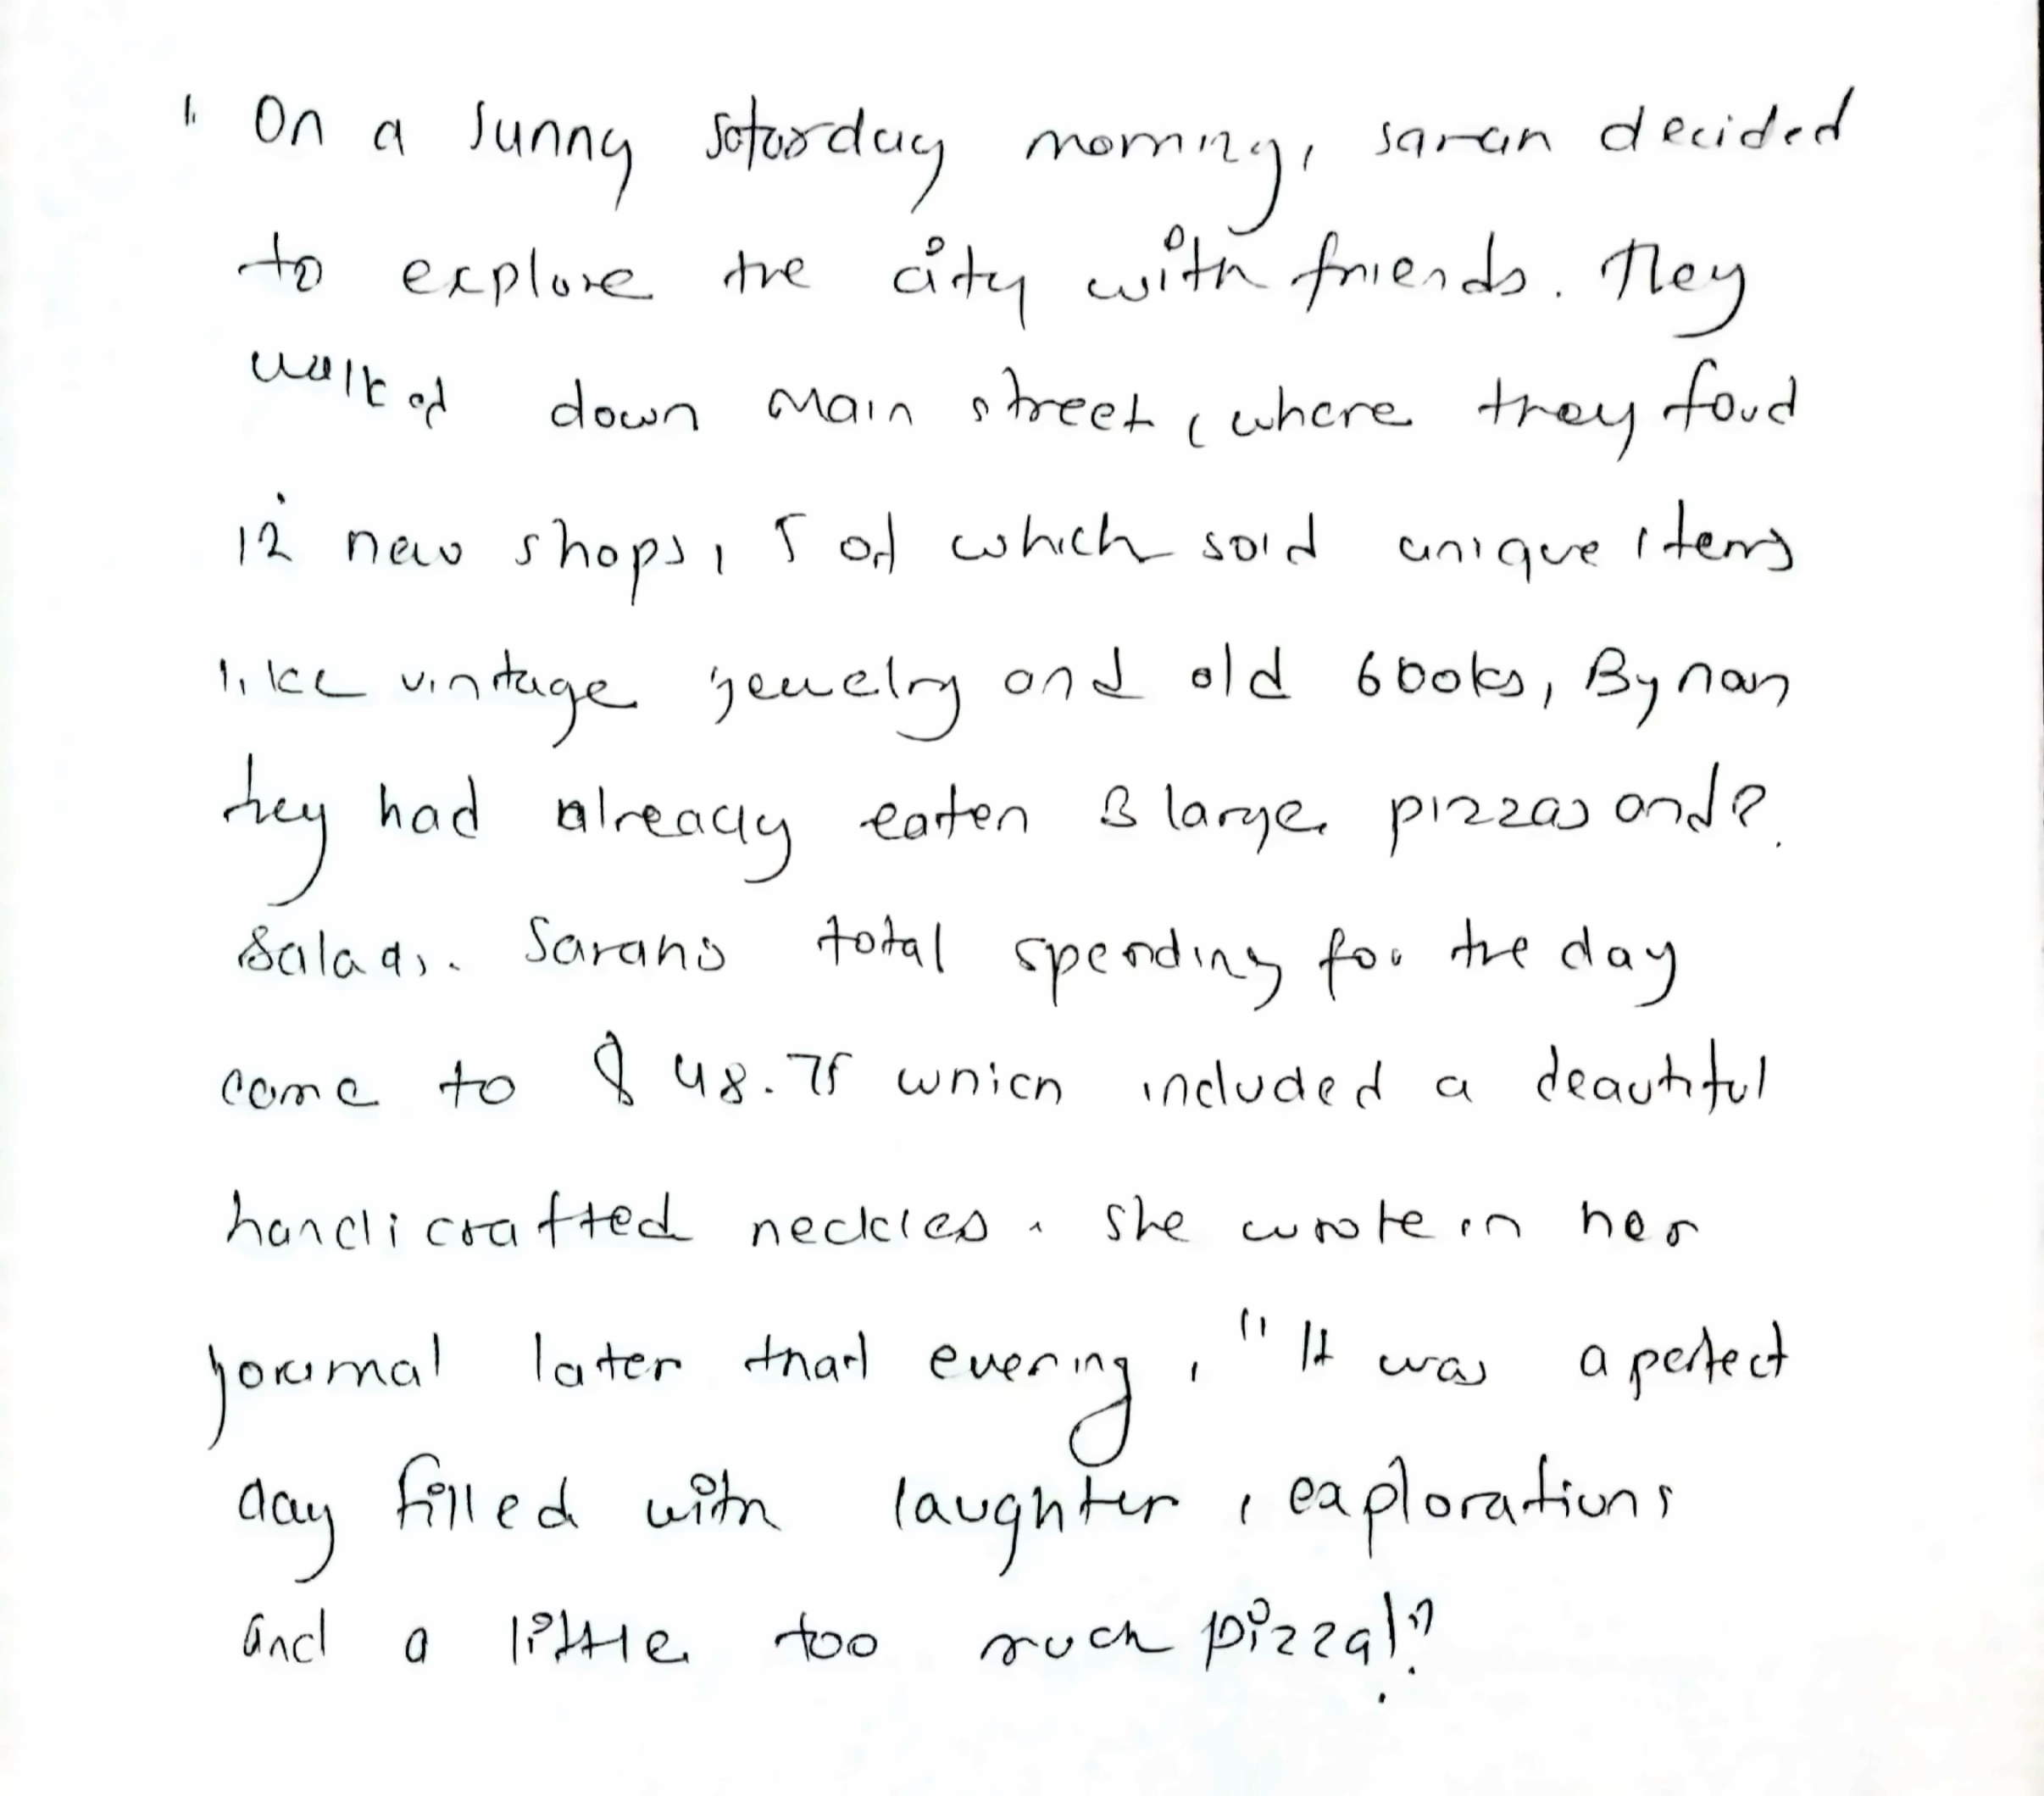 " On a sunny saturday morning, sarah decided
to explore the city with friends. They
walked down main street, where they foud
12 new shops, 5 of which sold unique items
like vintage jewelry and old books, By noon
they had already eaten 3 large pizzas and 2
salads. Sarahs total spending for the day
came to $ 48.75 which included a beautiful
handicrafted neckles. she wrote in her
journal later that evening, " It was a perfect
day filled with laughter, explorations
and a little too much pizza!"